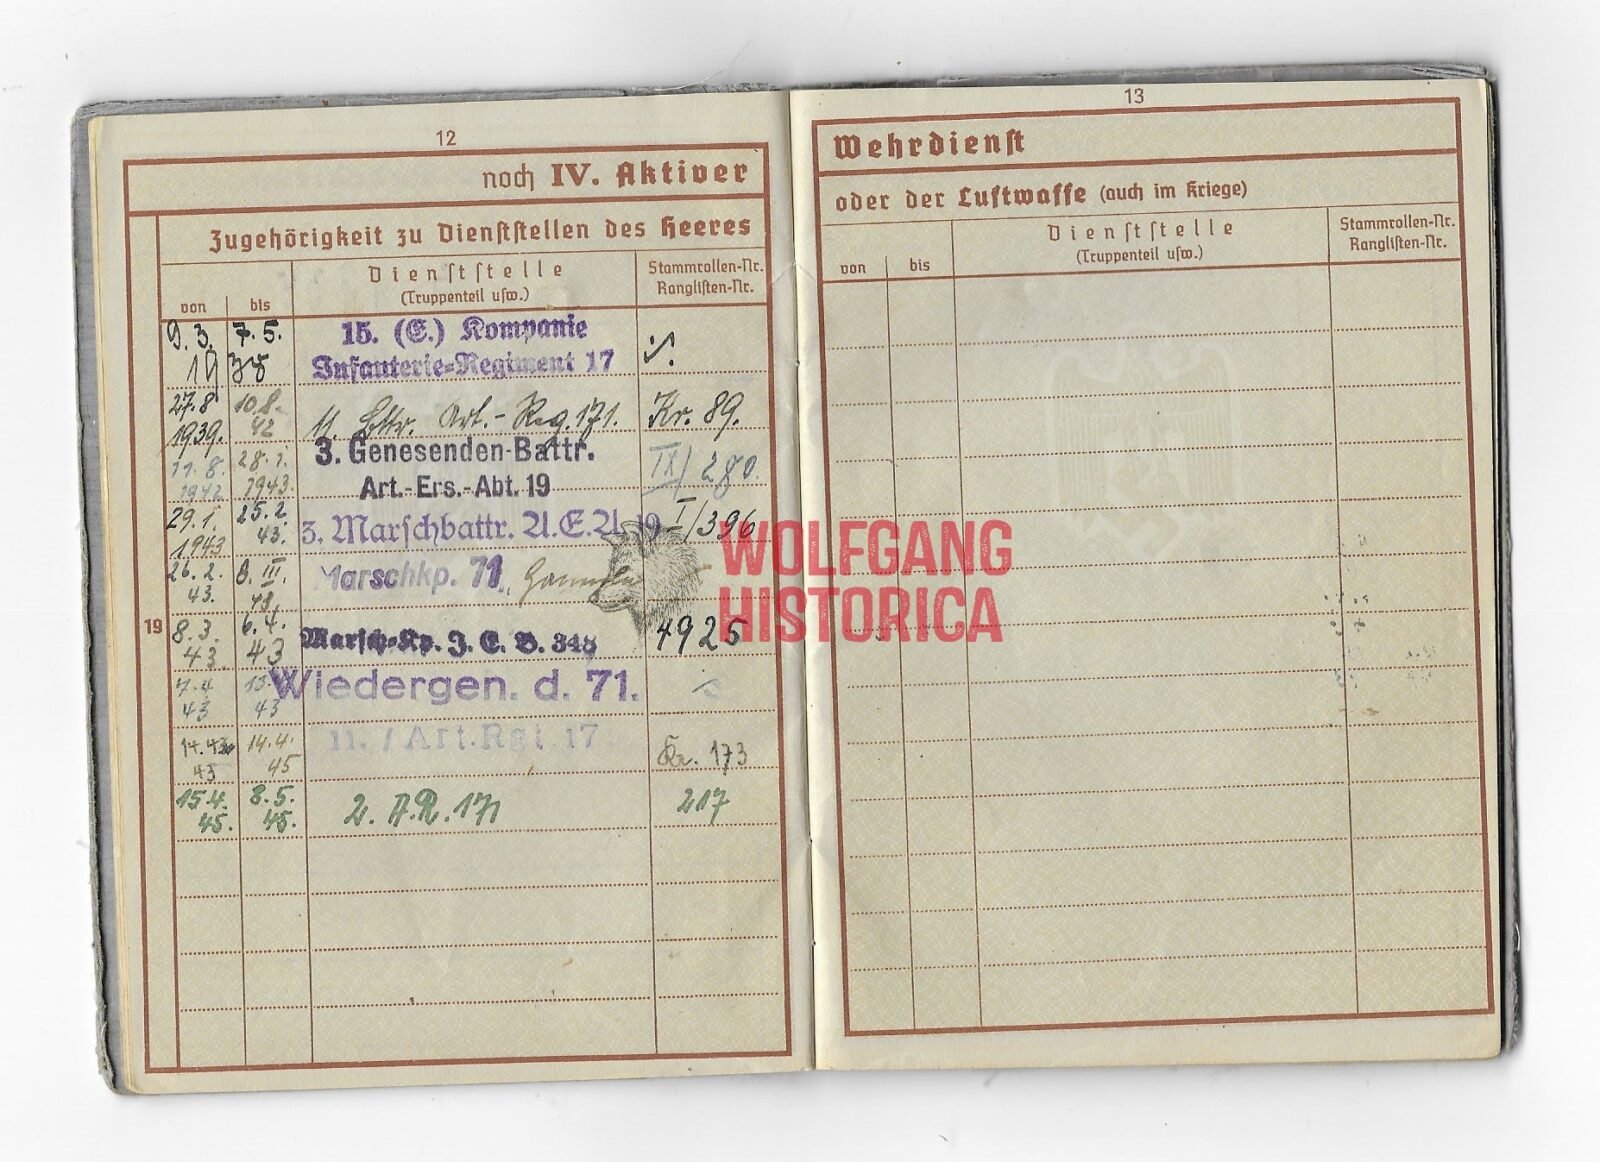 12
noch IV. Aktiver
Zugehörigkeit zu Dienststellen des Heeres
von
bis
Dienststelle
(Truppenteil usw.)
Stammrollen-Nr.
Ranglisten-Nr.
9.3. 7.5.
1938
15. (E.) Kompanie
Infanterie-Regiment 17
27.8. 10.8.
1939. 42
11. Bttr. Art.-Reg. 171.
Kr. 89.
11.8. 28.1.
1942 1943
3. Genesenden-Battr.
Art.-Ers.-Abt. 19
IX/280.
29.1. 25.2.
1943 43.
3. Marschbattr. A.E.A. 19
I/396
26.2. 8. III.
43.
Marschkp. 71
19
8.3. 6.4.
43 43
Marsch-Kp. J. E. B. 348
4925
7.4
43 43
Wiedergen. d. 71.
14.4.
43 45
11. / Art.Rgt. 17
Kr. 173
15.4. 8.5.
45. 45.
2. A.R. 171
217
13
Wehrdienst
oder der Luftwaffe (auch im Kriege)
von
bis
Dienststelle
(Truppenteil usw.)
Stammrollen-Nr.
Ranglisten-Nr.
WOLFGANG
HISTORICA